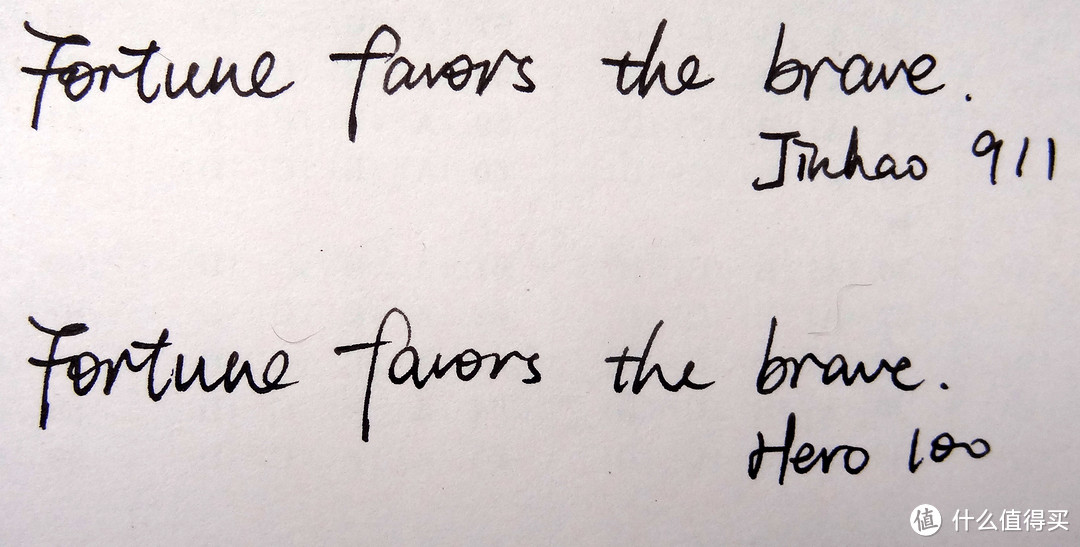 Fortune favors the brave.
Jinhao 911
Fortune favors the brave.
Hero 100
值 什么值得买